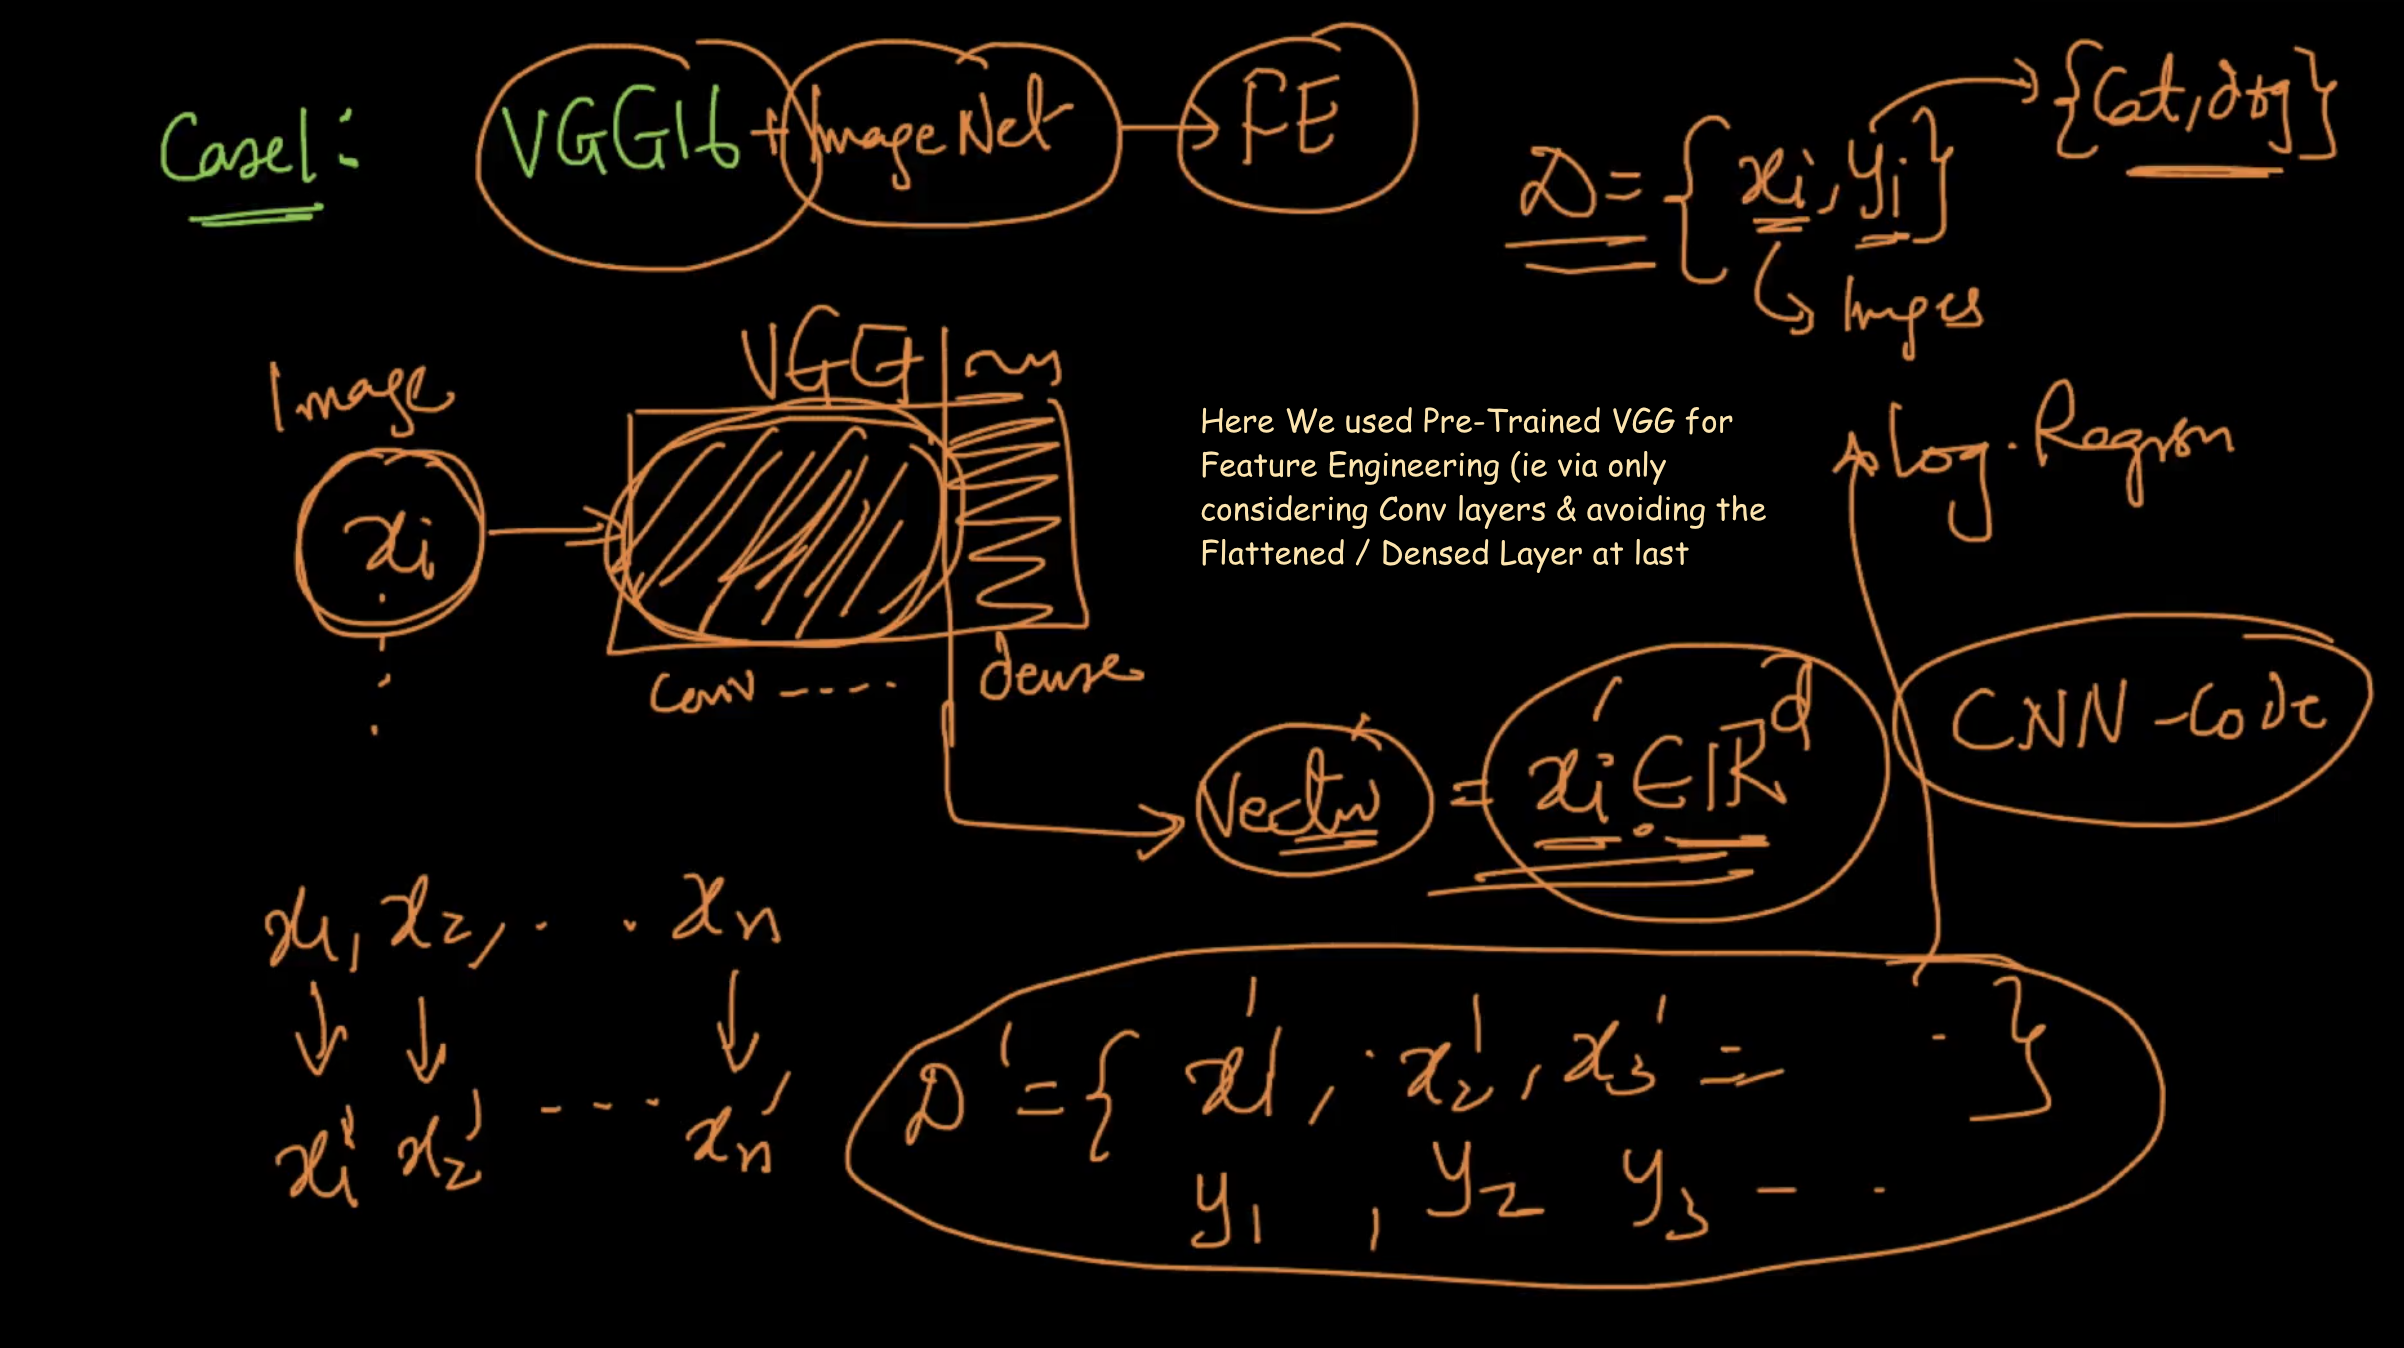 Case1: VGG16 + ImageNet → FE
D = {xi, yi} → {Cat, dog}
Imges
VGG
Image
xi
Here We used Pre-Trained VGG for
Feature Engineering (ie via only
considering Conv layers & avoiding the
Flattened / Densed Layer at last
Log. Regrson
Conv ----
dense
Vector = xi' ∈ R^d
CNN-Code
x1, x2, . . xn
x1' x2' ---- xn'
D' = { x1', x2', x3' = - }
y1, y2 y3 - -